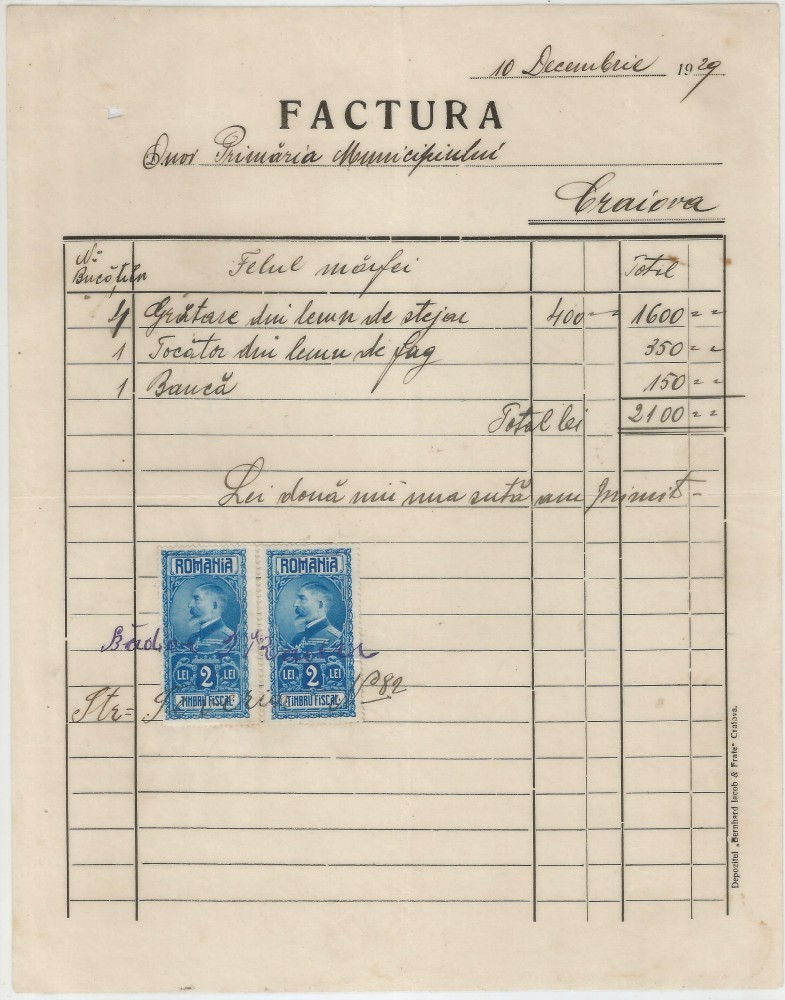 10 Decembrie 1929
FACTURA
Dnor Primăria Municipiului
Craiova
No Bucăților Felul mărfei Total
4 Grătare din lemn de stejar 400 = = 1600 = =
1 Tocător din lemn de fag 350 = =
1 Bancă 150 = =
Total lei 2100 = =
Lei două mii una sută am primit =
ROMANIA ROMANIA
LEI 2 LEI LEI 2 LEI
TIMBRU FISCAL TIMBRU FISCAL
Str= No 82
Depozitul „Bernhard Iacob & Frate" Craiova.